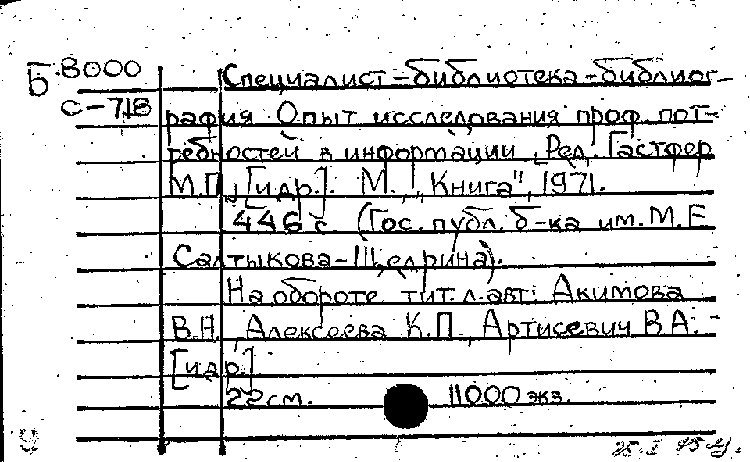 Б 8000
С-718
Специалист-библиотека-библиог-
рафия. Опыт исследования проф. пот-
ребностей в информации. Ред. Гастфер
М.П., [и др.]. М., „Книга", 1971.
446 с. (Гос. публ. б-ка им. М.Е.
Салтыкова-Щедрина).
На обороте тит. л. авт: Акимова
В.А., Алексеева К.П., Артисевич В.А. -
[и др.]
22 см. 11000 экз.